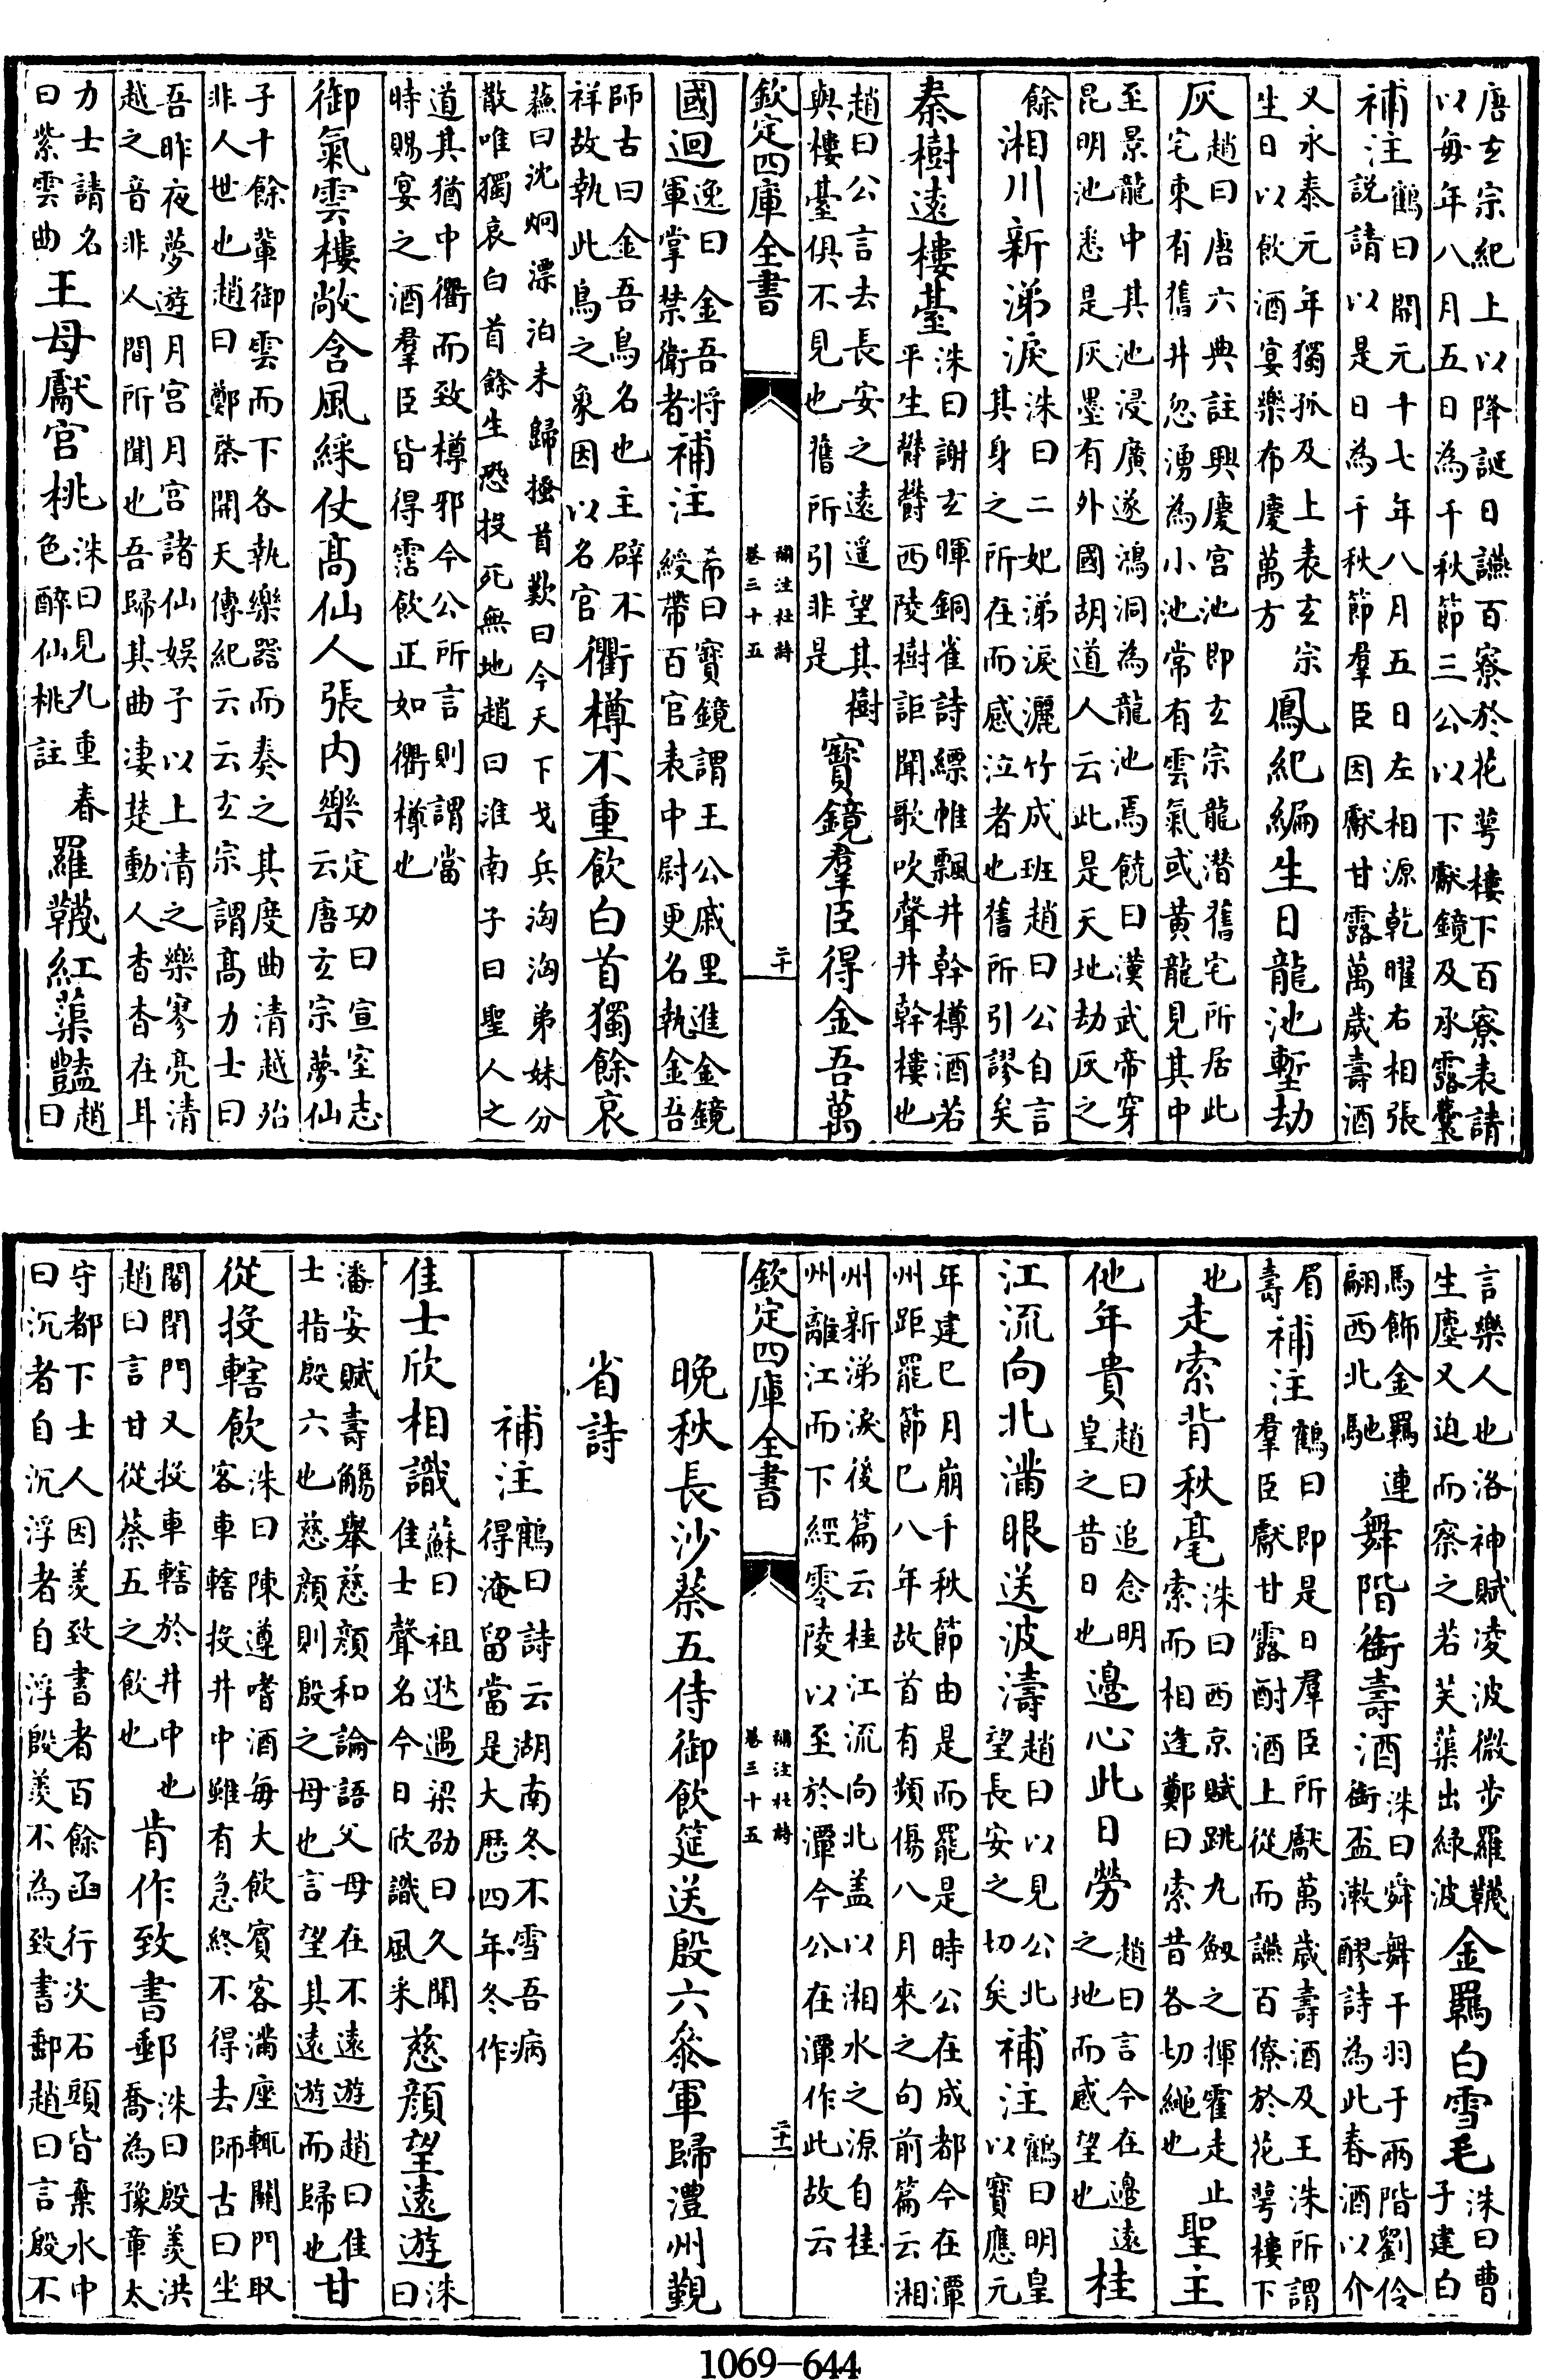 唐玄宗紀上以降誕日讌百寮於花萼樓下百寮表請
以每年八月五日為千秋節三公以下獻鏡及承露囊
補注鶴曰開元十七年八月五日左相源乾曜右相張
說請以是日為千秋節羣臣因獻甘露萬歲壽酒
又永泰元年獨孤及上表玄宗
生日以飲酒宴樂布慶萬方
鳳紀編生日龍池塹劫
灰
趙曰唐六典註興慶宮池即玄宗龍潛舊宅所居此
宅東有舊井忽湧為小池常有雲氣或黃龍見其中
至景龍中其池浸廣遂鴻洞為龍池焉饒曰漢武帝穿
昆明池悉是灰墨有外國胡道人云此是天地劫灰之
餘
湘川新涕淚
洙曰二妃涕淚灑竹成班趙曰公自言
其身之所在而感泣者也舊所引謬矣
秦樹遠樓臺
洙曰謝玄暉銅雀詩繐帷飄井幹樽酒若
平生鬱鬱西陵樹詎聞歌吹聲井幹樓也
趙曰公言去長安之遠遥望其樹
與樓臺俱不見也舊所引非是
寶鏡羣臣得金吾萬
欽定四庫全書
補注杜詩
卷三十五
二十
國迴
逸曰金吾將
軍掌禁衛者
補注
希曰寶鏡謂王公戚里進金鏡
綬帶百官表中尉更名執金吾
師古曰金吾鳥名也主辟不
祥故執此鳥之象因以名官
衢樽不重飲白首獨餘哀
蘓曰沈炯漂泊未歸搔首歎曰今天下戈兵洶洶弟妹分
散唯獨哀白首餘生恐投死無地趙曰淮南子曰聖人之
道其猶中衢而致樽邪今公所言則謂當
時賜宴之酒羣臣皆得霑飲正如衢樽也
御氣雲樓敞含風綵仗高仙人張内樂
定功曰宣室志
云唐玄宗夢仙
子十餘輩御雲而下各執樂器而奏之其度曲清越殆
非人世也趙曰鄭棨開天傳紀云云玄宗謂高力士曰
吾昨夜夢遊月宫月宫諸仙娛予以上清之樂寥亮清
越之音非人間所聞也吾歸其曲凄楚動人杳杳在耳
力士請名
曰紫雲曲
王母獻宫桃
洙曰見九重春
色醉仙桃註
羅韈紅蕖豔
趙
曰
言樂人也洛神賦凌波微步羅韈
生塵又迫而察之若芙蕖出緑波
金羈白雪毛
洙曰曹
子建白
馬飾金羈連
翩西北馳
舞階銜壽酒
洙曰舜舞干羽于兩階劉伶
銜盃漱醪詩為此春酒以介
眉
壽
補注
鶴曰即是日羣臣所獻萬歲壽酒及王洙所謂
羣臣獻甘露酎酒上從而讌百僚於花萼樓下
也
走索背秋毫
洙曰西京賦跳九劔之揮霍走止
索而相逢鄭曰索昔各切繩也
聖主
他年貴
趙曰追念明
皇之昔日也
邊心此日勞
趙曰言今在邊遠
之地而感望也
桂
江流向北滿眼送波濤
趙曰以見公北
望長安之切矣
補注
鶴曰明皇
以寶應元
年建巳月崩千秋節由是而罷是時公在成都今在潭
州距罷節巳八年故首有頻傷八月來之句前篇云湘
州新涕淚後篇云桂江流向北盖以湘水之源自桂
州離江而下經零陵以至於潭今公在潭作此故云
欽定四庫全書
補注杜詩
卷三十五
二十一
晚秋長沙蔡五侍御飲筵送殷六參軍歸澧州覲
省詩
補注
鶴曰詩云湖南冬不雪吾病
得淹留當是大厯四年冬作
佳士欣相識
蘇曰祖逖遇梁劭曰久聞
佳士聲名今日欣識風采
慈顔望遠遊
洙
曰
潘安賦壽觴舉慈顔和論語父母在不遠遊趙曰佳
士指殷六也慈顔則殷之母也言望其遠遊而歸也
甘
從投轄飲
洙曰陳遵嗜酒每大飲賓客滿座輒關門取
客車轄投井中雖有急終不得去師古曰坐
閣閉門又投車轄於井中也
趙曰言甘從蔡五之飲也
肯作致書郵
洙曰殷羡洪
喬為豫章太
守都下士人因羡致書者百餘函行次石頭皆棄水中
曰沉者自沉浮者自浮殷羡不為致書郵趙曰言殷不
1069-644